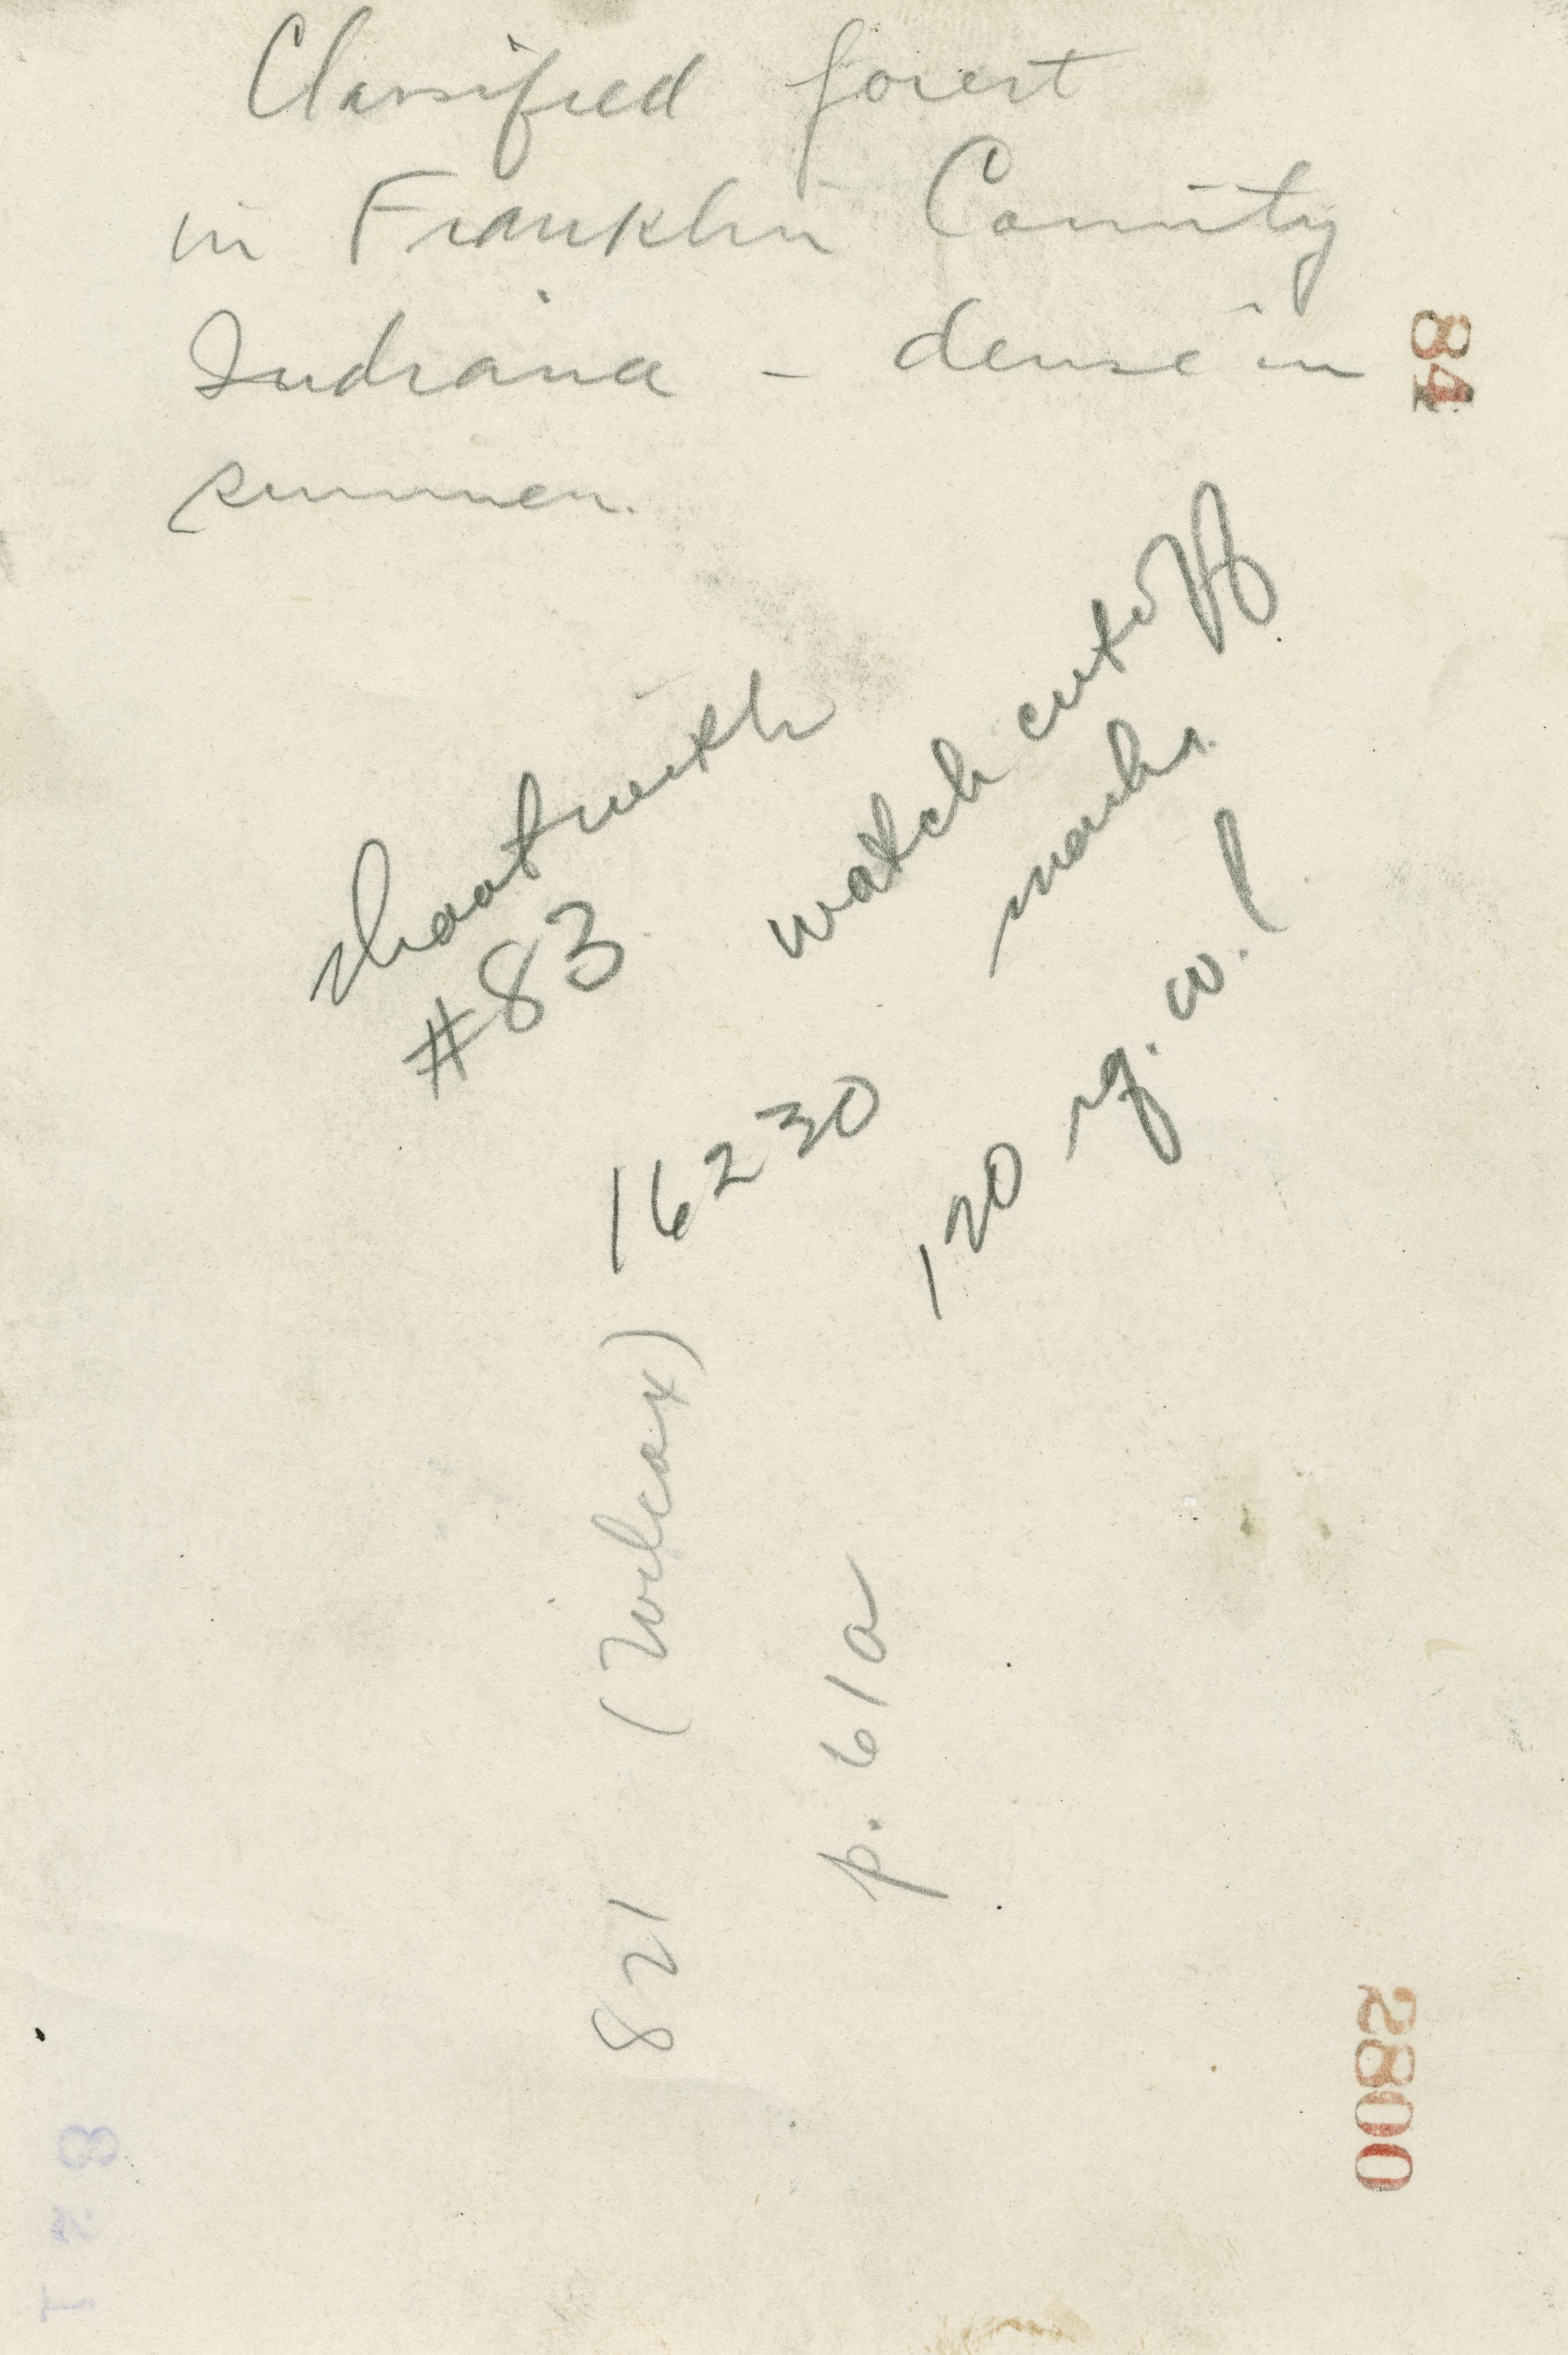 Classified forest
in Franklin County
Indiana - dense in
summer.
84
shoot with
#83
watch cutoff
marks.
16230
120 sq. w.!
821 (Wilcox)
p. 61a
2800